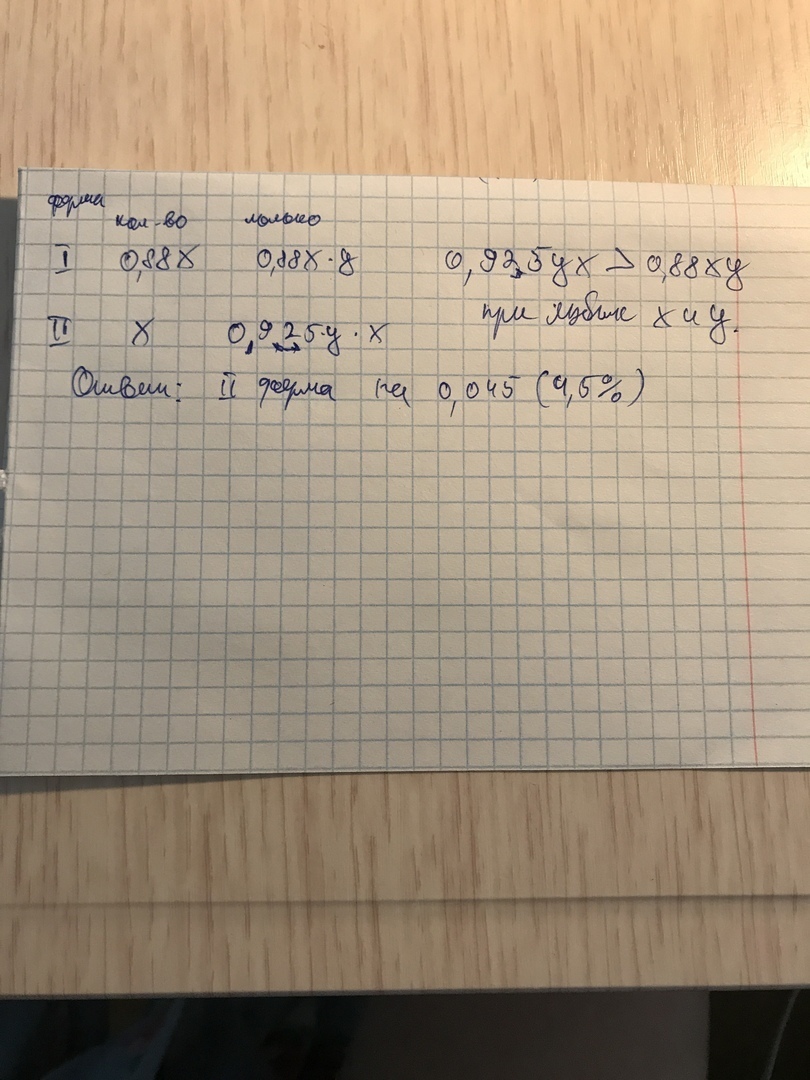 форма
кол-во молоко
I 0,88x 0,88x·y 0,925yx > 0,88xy
при любых x и y.
II x 0,925·y·x
Ответ: II ферма на 0,045 (4,5%)